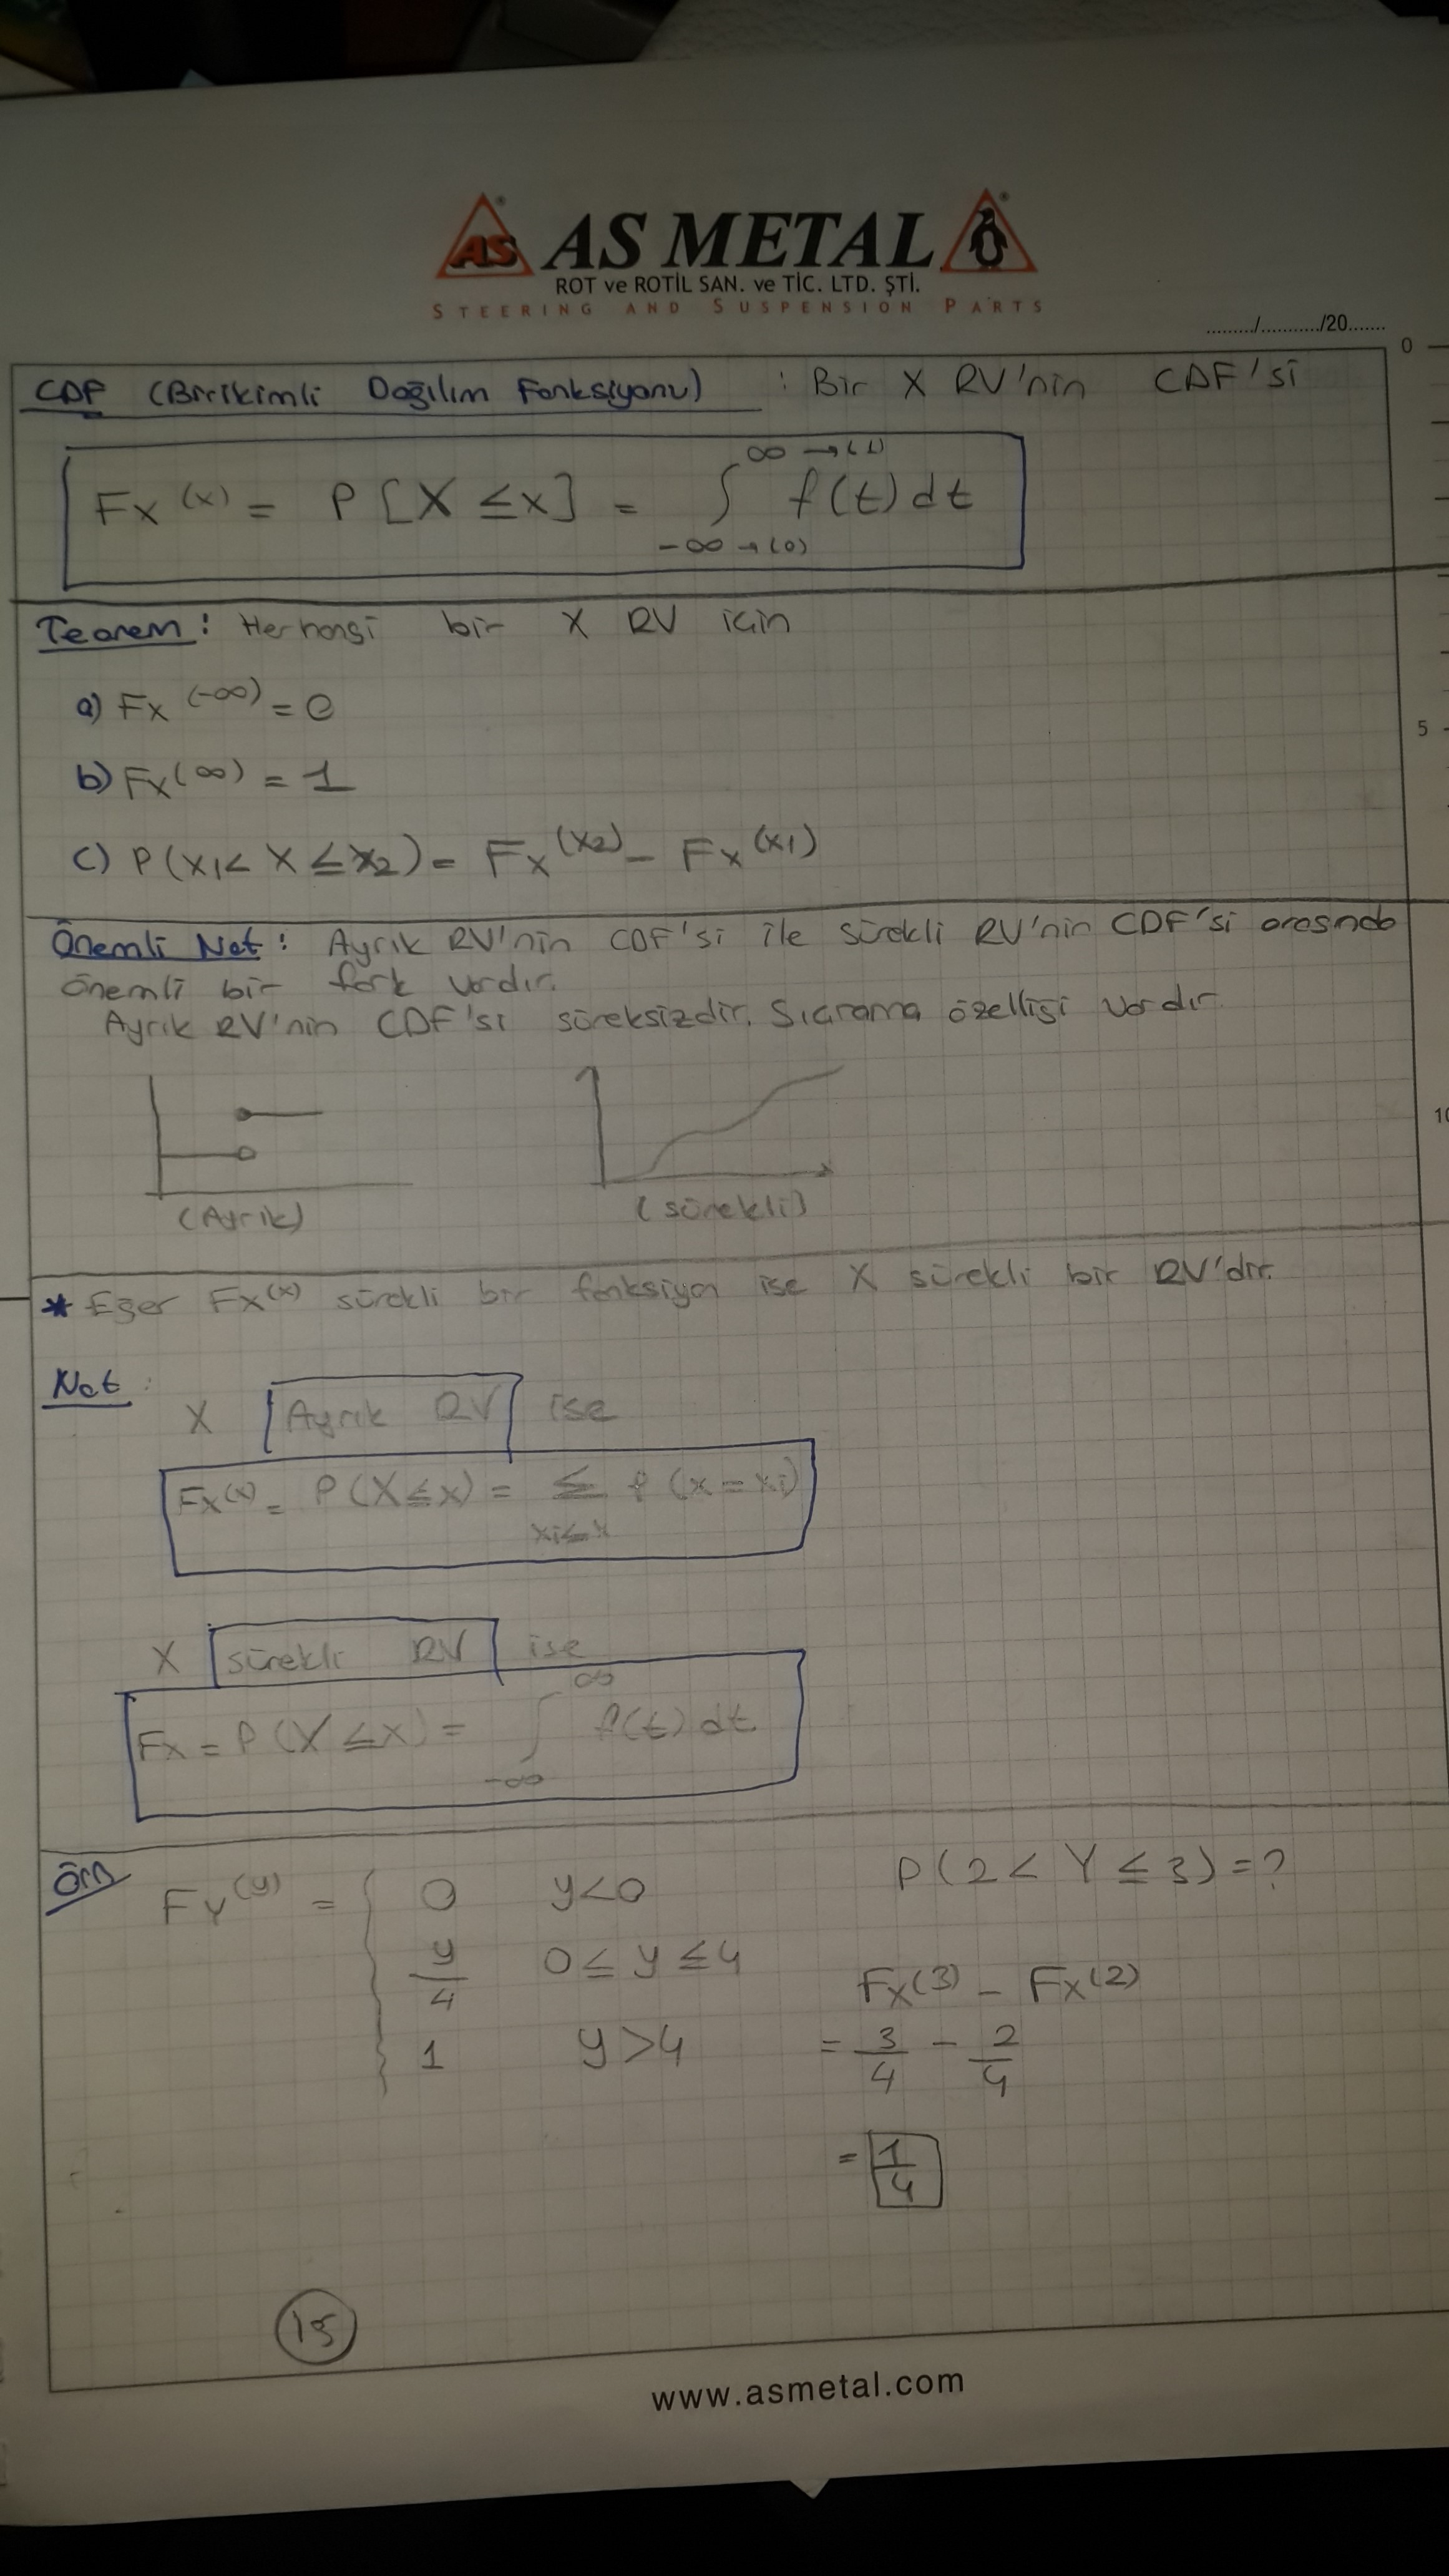 AS AS METAL
ROT ve ROTİL SAN. ve TİC. LTD. ŞTİ.
STEERING AND SUSPENSION PARTS
........./.........../20.......
0
5
10
CDF (Birikimli Dağılım Fonksiyonu) : Bir X RV'nin CDF'si
Fx(x) = P[X ≤ x] = ∫ f(t) dt
∞ → (1)
-∞ → (0)
Teorem: Herhangi bir X RV için
a) Fx(-∞) = 0
b) Fx(∞) = 1
c) P(x1 < X ≤ x2) = Fx(x2) - Fx(x1)
Önemli Not: Ayrık RV'nin CDF'si ile sürekli RV'nin CDF'si arasında
önemli bir fark vardır.
Ayrık RV'nin CDF'si süreksizdir. Sıçrama özelliği vardır
(Ayrık) (sürekli)
* Eğer Fx(x) sürekli bir fonksiyon ise X sürekli bir RV'dir.
Not:
X Ayrık RV ise
Fx(x) = P(X ≤ x) = Σ P(x = xi)
xi ≤ x
X sürekli RV ise
Fx = P(X ≤ x) = ∫ f(t) dt
∞
-∞
Örn FY(y) = 0 y<0 P(2 < Y ≤ 3) = ?
y/4 0 ≤ y ≤ 4 Fx(3) - Fx(2)
1 y>4 = 3/4 - 2/4
= 1/4
www.asmetal.com